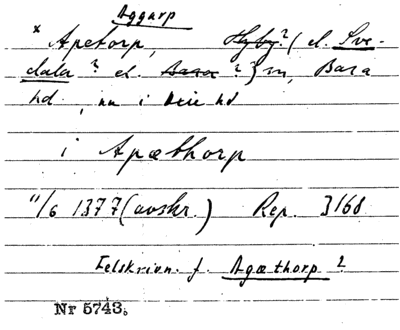 Aggarp
* Apetorp, Hyby? (el. Sve-
dala? el. Bara?) sn, Bara
hd, nu i hd
i Apæthorp
11/6 1377 (avskr.) Rep. 3168
Felskrivn. f. Agæthorp?
Nr 5743.